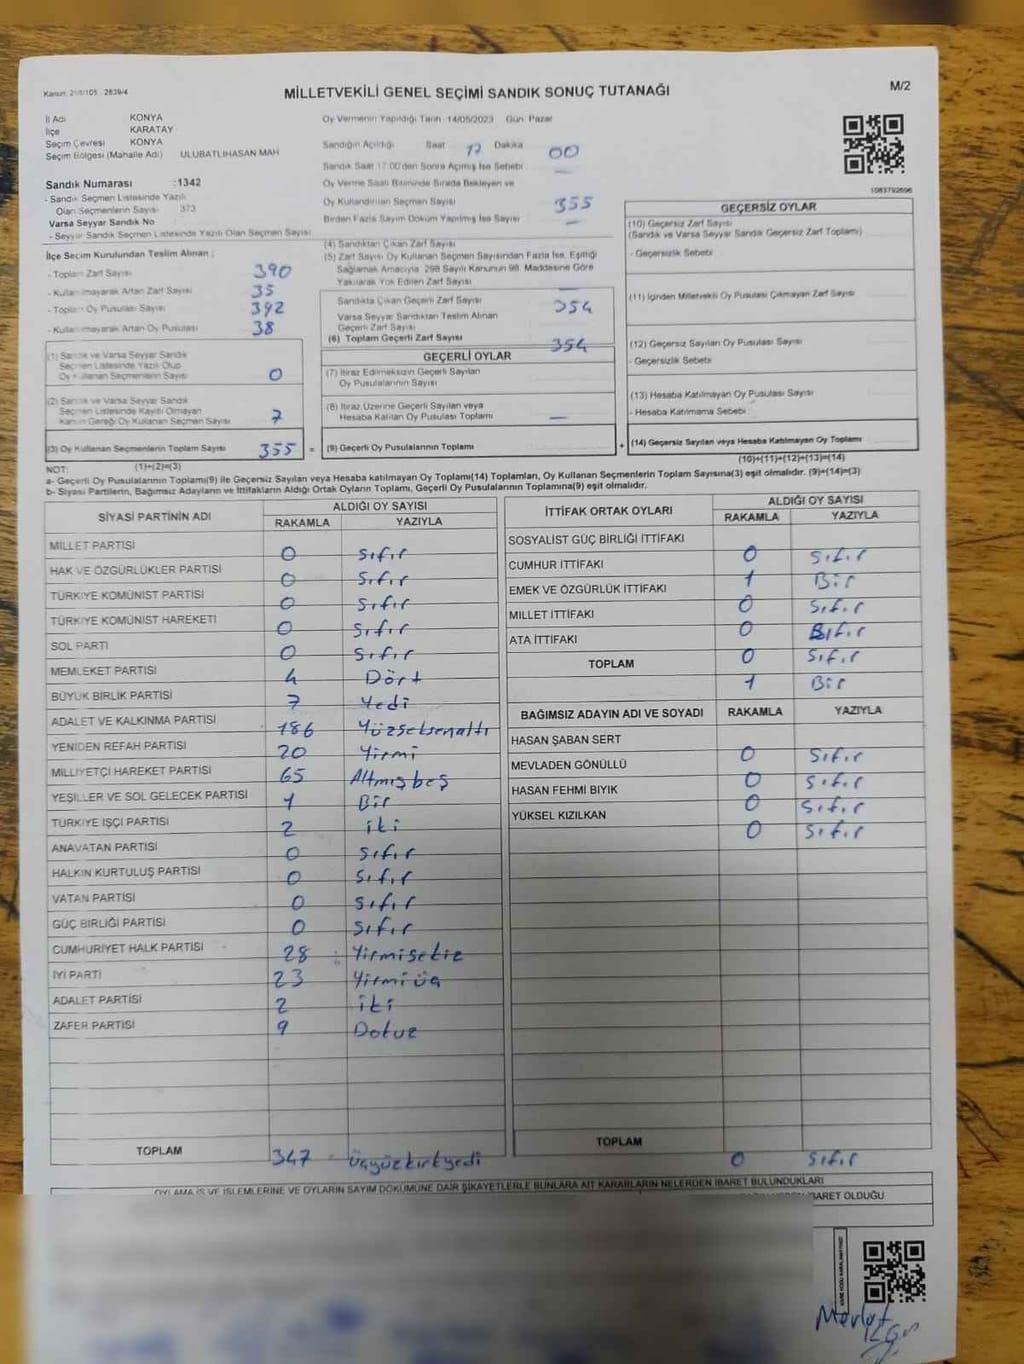 Kanun: 298/105 2839/4
MİLLETVEKİLİ GENEL SEÇİMİ SANDIK SONUÇ TUTANAĞI
M/2
İl Adı KONYA
İlçe KARATAY
Seçim Çevresi KONYA
Seçim Bölgesi (Mahalle Adı) ULUBATLIHASAN MAH
Sandık Numarası : 1342
- Sandık Seçmen Listesinde Yazılı
Olan Seçmenlerin Sayısı 373
Varsa Seyyar Sandık No
- Seyyar Sandık Seçmen Listesinde Yazılı Olan Seçmen Sayısı
Oy Vermenin Yapıldığı Tarih 14/05/2023 Gün Pazar
Sandığın Açıldığı Saat 17 Dakika 00
Sandık Saat 17:00'den Sonra Açılmış İse Sebebi —
Oy Verme Saati Bitiminde Sırada Bekleyen ve
Oy Kullandırılan Seçmen Sayısı 355
Birden Fazla Sayım Döküm Yapılmış İse Sayısı —
1083792696
İlçe Seçim Kurulundan Teslim Alınan :
- Toplam Zarf Sayısı 390
- Kullanılmayarak Artan Zarf Sayısı 35
- Toplam Oy Pusulası Sayısı 392
- Kullanılmayarak Artan Oy Pusulası 38
(1) Sandık ve Varsa Seyyar Sandık
Seçmen Listesinde Yazılı Olup
Oy Kullanan Seçmenlerin Sayısı 0
(2) Sandık ve Varsa Seyyar Sandık
Seçmen Listesinde Kayıtlı Olmayan
Kanun Gereği Oy Kullanan Seçmen Sayısı 7
(3) Oy Kullanan Seçmenlerin Toplam Sayısı 355 =
(1)+(2)=(3)
(4) Sandıktan Çıkan Zarf Sayısı
(5) Zarf Sayısı Oy Kullanan Seçmen Sayısından Fazla İse, Eşitliği
Sağlamak Amacıyla 298 Sayılı Kanunun 98. Maddesine Göre
Yakılarak Yok Edilen Zarf Sayısı —
Sandıkta Çıkan Geçerli Zarf Sayısı 354
Varsa Seyyar Sandıktan Teslim Alınan
Geçerli Zarf Sayısı
(6) Toplam Geçerli Zarf Sayısı 354
GEÇERLİ OYLAR
(7) İtiraz Edilmeksizin Geçerli Sayılan
Oy Pusulalarının Sayısı
(8) İtiraz Üzerine Geçerli Sayılan veya
Hesaba Katılan Oy Pusulası Toplamı —
(9) Geçerli Oy Pusulalarının Toplamı +
GEÇERSİZ OYLAR
(10) Geçersiz Zarf Sayısı
(Sandık ve Varsa Seyyar Sandık Geçersiz Zarf Toplamı)
- Geçersizlik Sebebi
(11) İçinden Milletvekili Oy Pusulası Çıkmayan Zarf Sayısı
(12) Geçersiz Sayılan Oy Pusulası Sayısı
- Geçersizlik Sebebi
(13) Hesaba Katılmayan Oy Pusulası Sayısı
- Hesaba Katılmama Sebebi
(14) Geçersiz Sayılan veya Hesaba Katılmayan Oy Toplamı
(10)+(11)+(12)+(13)=(14)
NOT:
a- Geçerli Oy Pusulalarının Toplamı(9) ile Geçersiz Sayılan veya Hesaba katılmayan Oy Toplamı(14) Toplamları, Oy Kullanan Seçmenlerin Toplam Sayısına(3) eşit olmalıdır. (9)+(14)=(3)
b- Siyasi Partilerin, Bağımsız Adayların ve İttifakların Aldığı Ortak Oyların Toplamı, Geçerli Oy Pusulalarının Toplamına(9) eşit olmalıdır.
SİYASİ PARTİNİN ADI ALDIĞI OY SAYISI
RAKAMLA YAZIYLA
MİLLET PARTİSİ 0 Sıfır
HAK VE ÖZGÜRLÜKLER PARTİSİ 0 Sıfır
TÜRKİYE KOMÜNİST PARTİSİ 0 Sıfır
TÜRKİYE KOMÜNİST HAREKETİ 0 Sıfır
SOL PARTİ 0 Sıfır
MEMLEKET PARTİSİ 4 Dört
BÜYÜK BİRLİK PARTİSİ 7 Yedi
ADALET VE KALKINMA PARTİSİ 186 Yüzseksenaltı
YENİDEN REFAH PARTİSİ 20 Yirmi
MİLLİYETÇİ HAREKET PARTİSİ 65 Altmışbeş
YEŞİLLER VE SOL GELECEK PARTİSİ 1 Bir
TÜRKİYE İŞÇİ PARTİSİ 2 iki
ANAVATAN PARTİSİ 0 Sıfır
HALKIN KURTULUŞ PARTİSİ 0 Sıfır
VATAN PARTİSİ 0 Sıfır
GÜÇ BİRLİĞİ PARTİSİ 0 Sıfır
CUMHURİYET HALK PARTİSİ 28 Yirmisekiz
İYİ PARTİ 23 Yirmiüç
ADALET PARTİSİ 2 iki
ZAFER PARTİSİ 9 Dokuz
TOPLAM 347 Üçyüzkırkyedi
İTTİFAK ORTAK OYLARI ALDIĞI OY SAYISI
RAKAMLA YAZIYLA
SOSYALİST GÜÇ BİRLİĞİ İTTİFAKI 0 Sıfır
CUMHUR İTTİFAKI 1 Bir
EMEK VE ÖZGÜRLÜK İTTİFAKI 0 Sıfır
MİLLET İTTİFAKI 0 Sıfır
ATA İTTİFAKI 0 Sıfır
TOPLAM 1 Bir
BAĞIMSIZ ADAYIN ADI VE SOYADI RAKAMLA YAZIYLA
HASAN ŞABAN SERT 0 Sıfır
MEVLADEN GÖNÜLLÜ 0 Sıfır
HASAN FEHMİ BIYIK 0 Sıfır
YÜKSEL KIZILKAN 0 Sıfır
TOPLAM 0 Sıfır
OYLAMA İŞ VE İŞLEMLERİNE VE OYLARIN SAYIM DÖKÜMÜNE DAİR ŞİKAYETLERLE BUNLARA AİT KARARLARIN NELERDEN İBARET BULUNDUKLARI
İBARET OLDUĞU